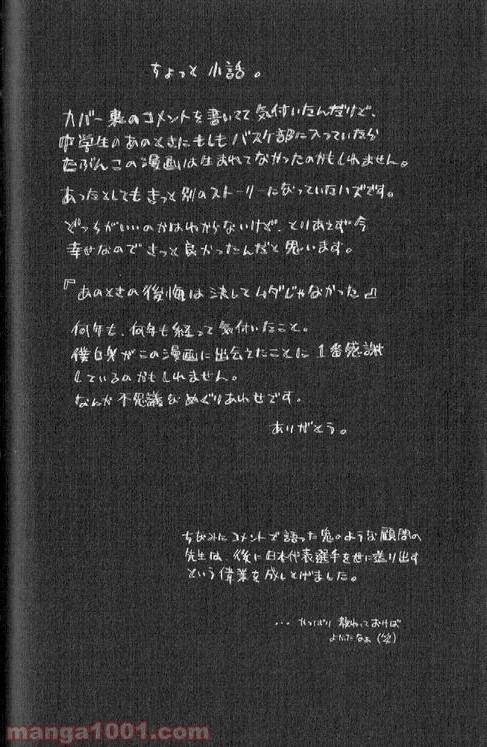 ちょっと小話。
カバー裏のコメントを書いてて気付いたんだけど、
中学生のあのときにもしもバスケ部に入っていたら
たぶんこの漫画は生まれてなかったのかもしれません。
あったとしてもきっと別のストーリーになっていたハズです。
どっちがいいのかはわからないけど、とりあえず今
幸せなのできっと良かったんだと思います。
『あのときの後悔は決してムダじゃなかった』
何年も、何年も経って気付いたこと。
僕自身がこの漫画に出会えたことに1番感謝
しているのかもしれません。
なんか不思議なめぐりあわせです。
ありがとう。
ちなみにコメントで語った鬼のような顧問の
先生は、後に日本代表選手を世に送り出す
という偉業を成しとげました。
...やっぱり教わっておけば
よかったなぁ(笑)
manga1001.com